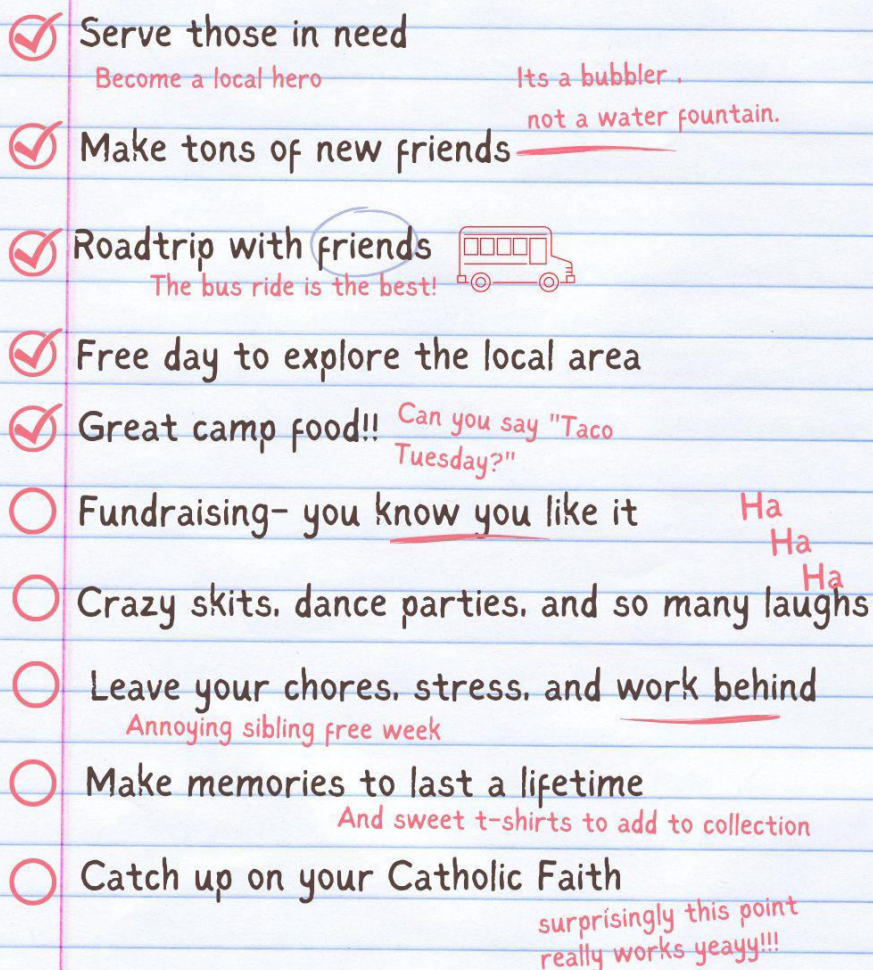 Serve those in need
Become a local hero
Its a bubbler .
not a water fountain.
Make tons of new friends
Roadtrip with friends
The bus ride is the best!
Free day to explore the local area
Great camp food!!
Can you say "Taco
Tuesday?"
Fundraising- you know you like it
Ha
Ha
Ha
Crazy skits, dance parties, and so many laughs
Leave your chores, stress, and work behind
Annoying sibling free week
Make memories to last a lifetime
And sweet t-shirts to add to collection
Catch up on your Catholic Faith
surprisingly this point
really works yeayy!!!